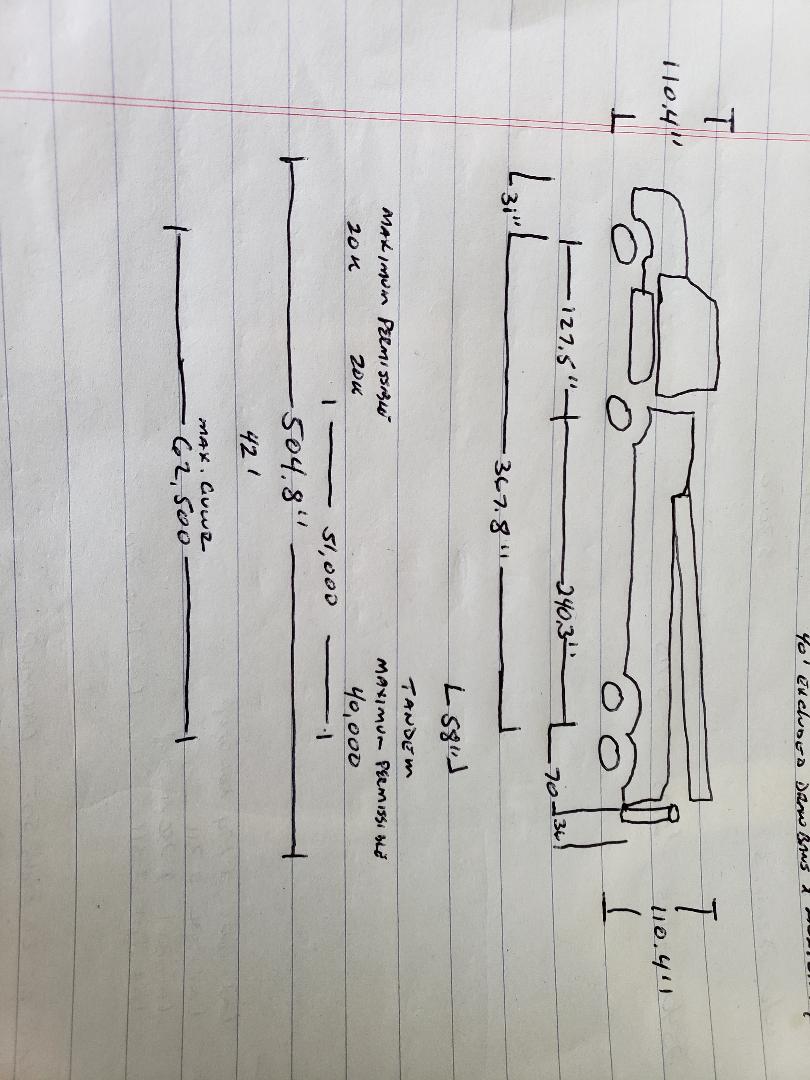 110.4"
110.4"
127.5"
240.3"
70
36
31"
367.8"
58"
TANDEM
MAXIMUM PERMISSIBLE
MAXIMUM PERMISSIBLE
20K
20K
40,000
51,000
504.8"
42'
MAX. GVWR
62,500